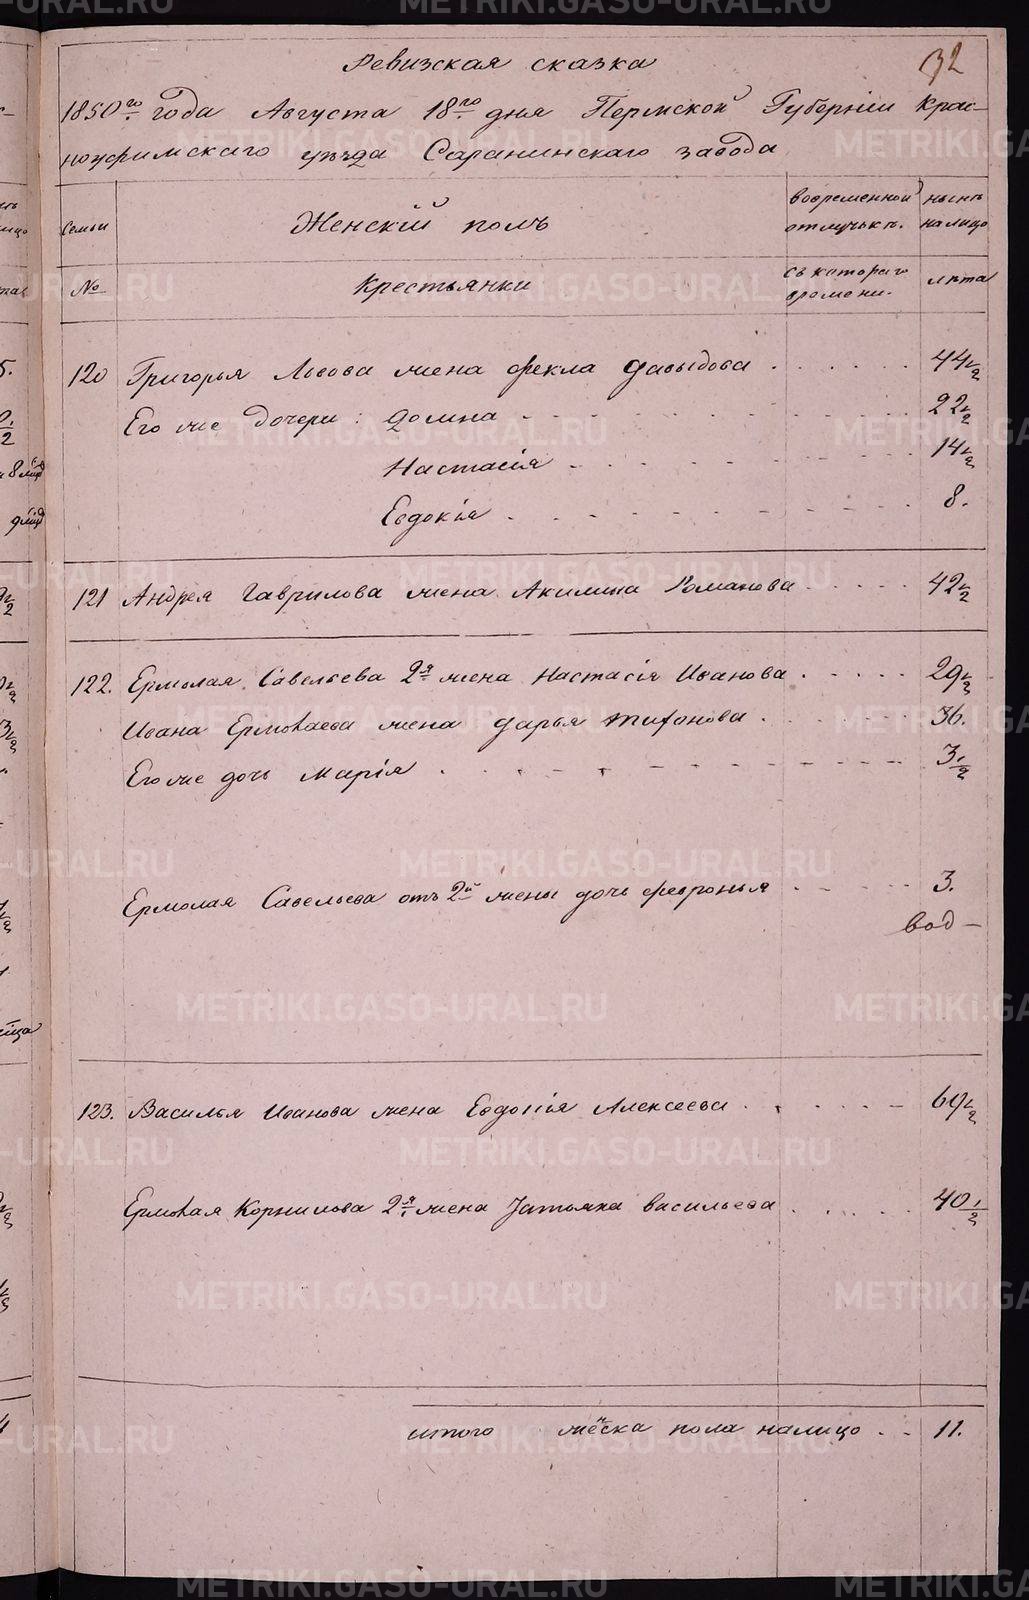 32
Ревизская сказка
1850го года Августа 18го дня Пермской Губернiи Крас-
ноуфимскаго уѣзда Саранинскаго завода
Семьи
Женскiй полъ
во временной отлучькѣ.
нынѣ на лицо
№
Крестьянки
съ котораго времени.
лѣта
120 Григорья Львова жена Фекла Давыдова . . . . . . 44 1/2
Его же дочери: Домна . . . . . . 22 1/2
Настасiя . . . . . . 14 1/2
Евдокiя . . . . . . 8.
121 Андрея Гаврилова жена Акилина Романова . . . . . 42 1/2
122. Ермолая Савельева 2я жена Настасiя Иванова . . . . . 29 1/2
Ивана Ермолаева жена Дарья Тифонова . . . . . 36.
Его же дочь Марiя . . . . . . 3 1/2
Ермолая Савельева отъ 2й жены дочь Февронья . . . . . 3.
вод-
123. Василья Иванова жена Евдокiя Алексеева . . . . . 69 1/2
Ермолая Корнилова 2я жена Татьяна Васильева . . . . . 40 1/2
итого женска пола налицо . . 11.
METRIKI.GASO-URAL.RU